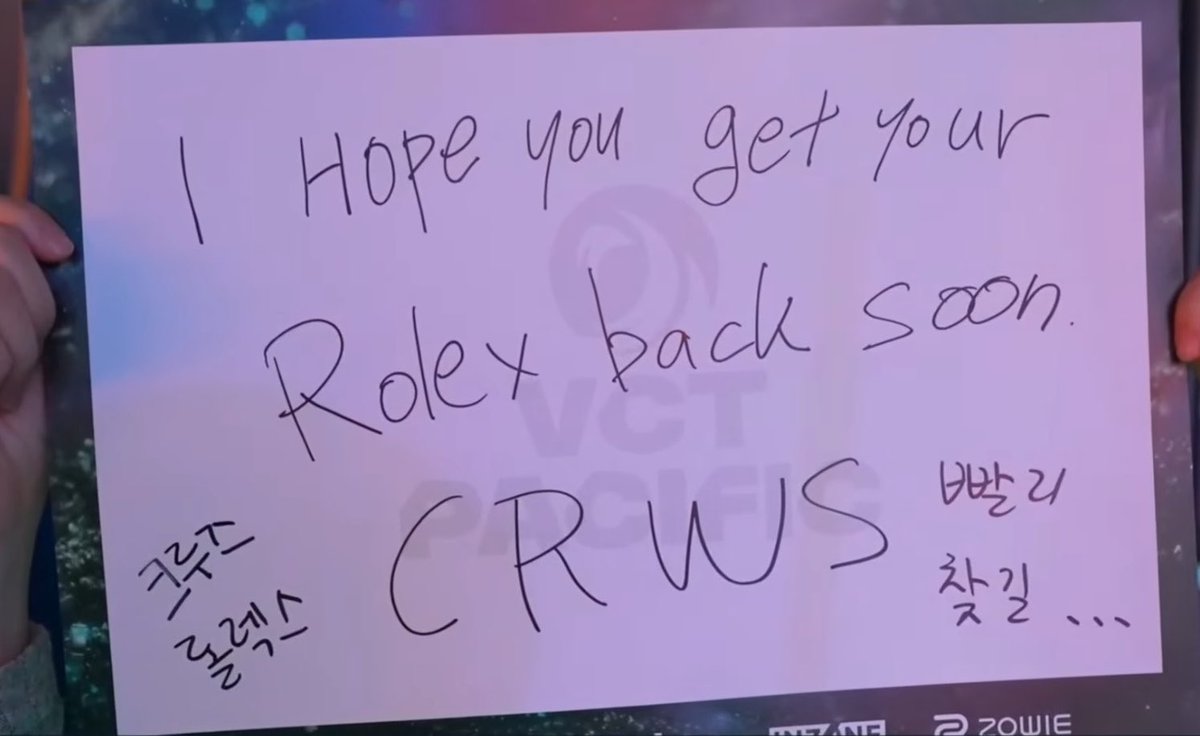 I Hope you get your
Rolex back soon.
CRWS
크루즈
롤렉스
빨리
찾길 ...
VCT
PACIFIC
ZOWIE